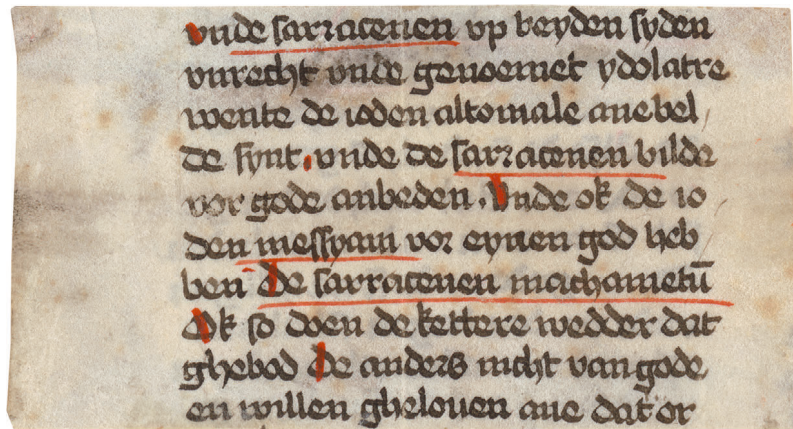 vnde sarracenen vp beyden syden
vnrecht vnde genoemet ydolatre
wente de ioden altomale ane bel /
de synt. vnde de sarracenen bilde
vor gode anbeden. Vnde ok de io
den messyam vor eynen god heb /
ben De sarracenen machametū
Ok so doen de kettere wedder dat
ghebod De anders nicht van gode
en willen ghelouen ane dat or